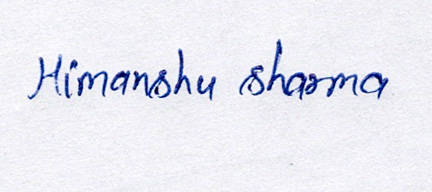 Himanshu sharma